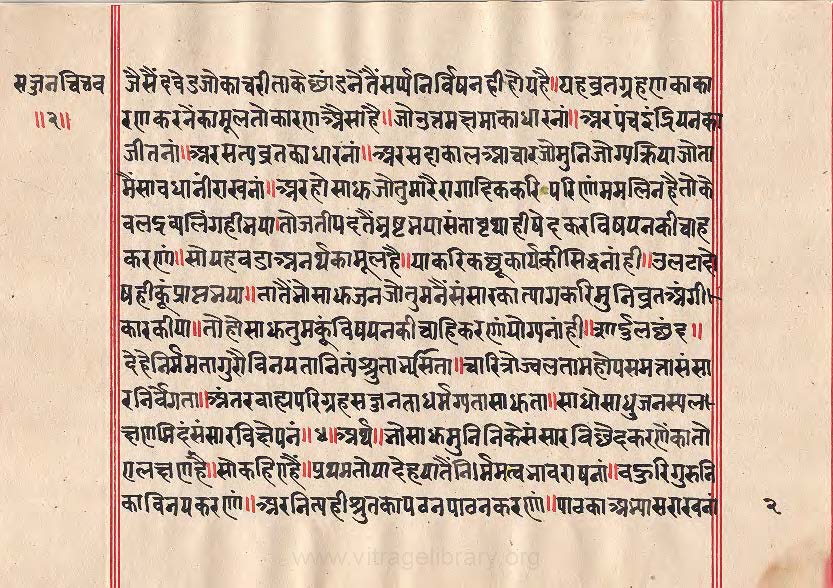 सज्जनचित्तव
॥२॥
जैसैं दवेडजोकाचरीताकेछांडनेंतैंसर्प्पनिर्विषनहीहोयहै॥यहव्रतग्रहणकाका
रणकरनेंकामूलतोकारणऔसाहै॥जोनुत्तमक्षमाकाधारनां॥अरपंचइंद्रियनका
जीतनां॥अरसत्यव्रतकाधारनां॥अरसदाकालआचारजोमुनिजोग्यक्रियाजोता
मैंसावधानीराखनां॥अरहोसाधजोतुमारैरागादिककरिपरिणांममलिनहैतोके
वलद्रव्यलिंगहीभया।तोजतीपदतैंभ्रष्टभयासंतावृथाहीषेदकरविषयनकीवाह
करणां॥सोयहवडाअनर्थकामूलहै॥याकरिकछूकार्यकीसिद्धनांही॥उलटादो
षहीकूंप्राप्तभया॥तातैंभोसाधजनजोतुमनैसंसारकात्यागकरिमुनिव्रतअंगी
कारकीया॥तौहोसाधतुमकूंविषयनकीवाहिकरणांयोग्यनांही॥शार्दुलछंद॥
देहेनिर्ममतागुरौविनयतानित्यंश्रुताभ्यासता॥चारित्रोज्वलतामहोपसमतासंसा
रनिर्वेगता॥अंतरबाह्यपरिग्रहसजनताधर्मग्यतासाधता॥साधोसाधुजनस्यल
क्षणमिदंसंसारविछेपनं॥५॥अर्थ॥भोसाधमुनिनिकेसंसारविछेदकरणेंकातो
एलक्षणहै॥सोकहिएहैं॥प्रथमतोयादेहथातैंनिर्ममत्वभावराषनां॥बहुरिगुरुनि
काविनयकरणां॥अरनित्यहीश्रुतकापठनपाठनकरणां॥पाठकाअभ्यासराखनां
२
www.vitragelibrary.org